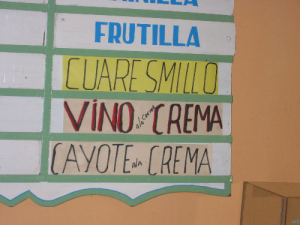 FRUTILLA
CUARESMILLO
VINO a la crema CREMA
CAYOTE a la CREMA